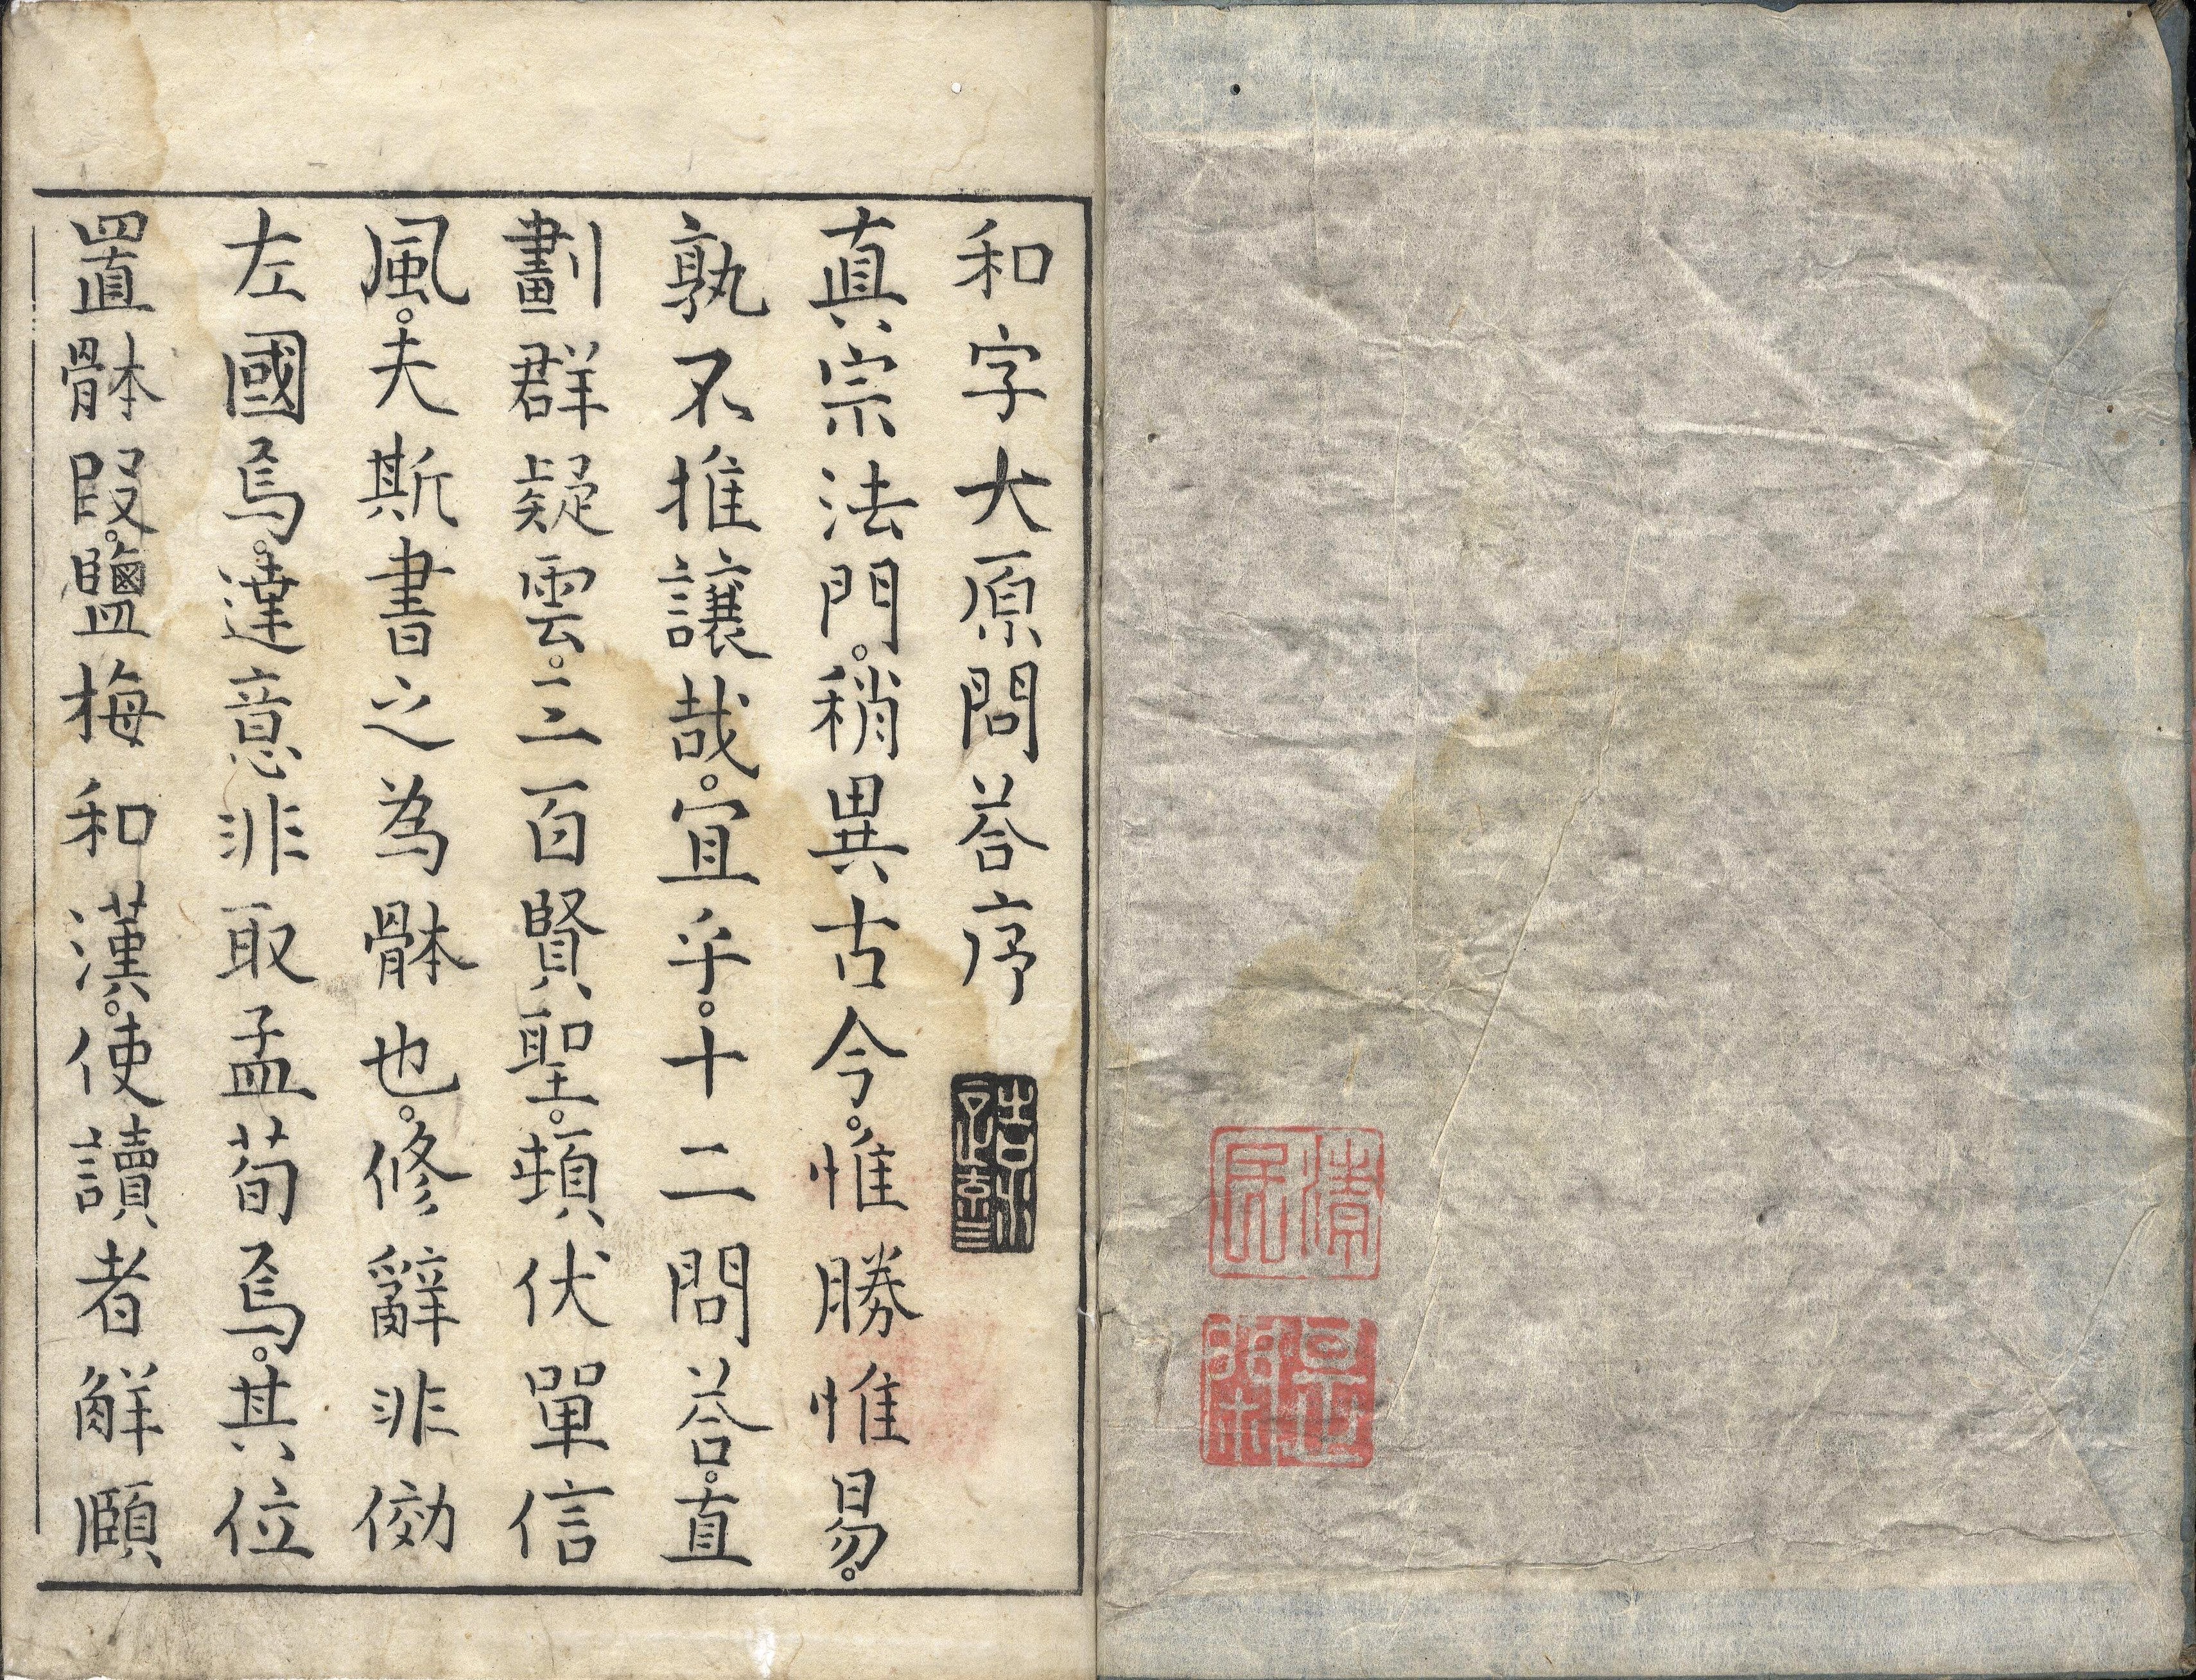 和字大原問荅序
真宗法門。稍異古今。惟勝惟易。
孰不推讓哉。宜乎。十二問荅。直
劃群疑雲。三百賢聖。頓伏單信
風。夫斯書之為骵也。修辭非俲
左國焉。達意非取孟荀焉。其位
置骵叚。鹽梅和漢。使讀者解頤